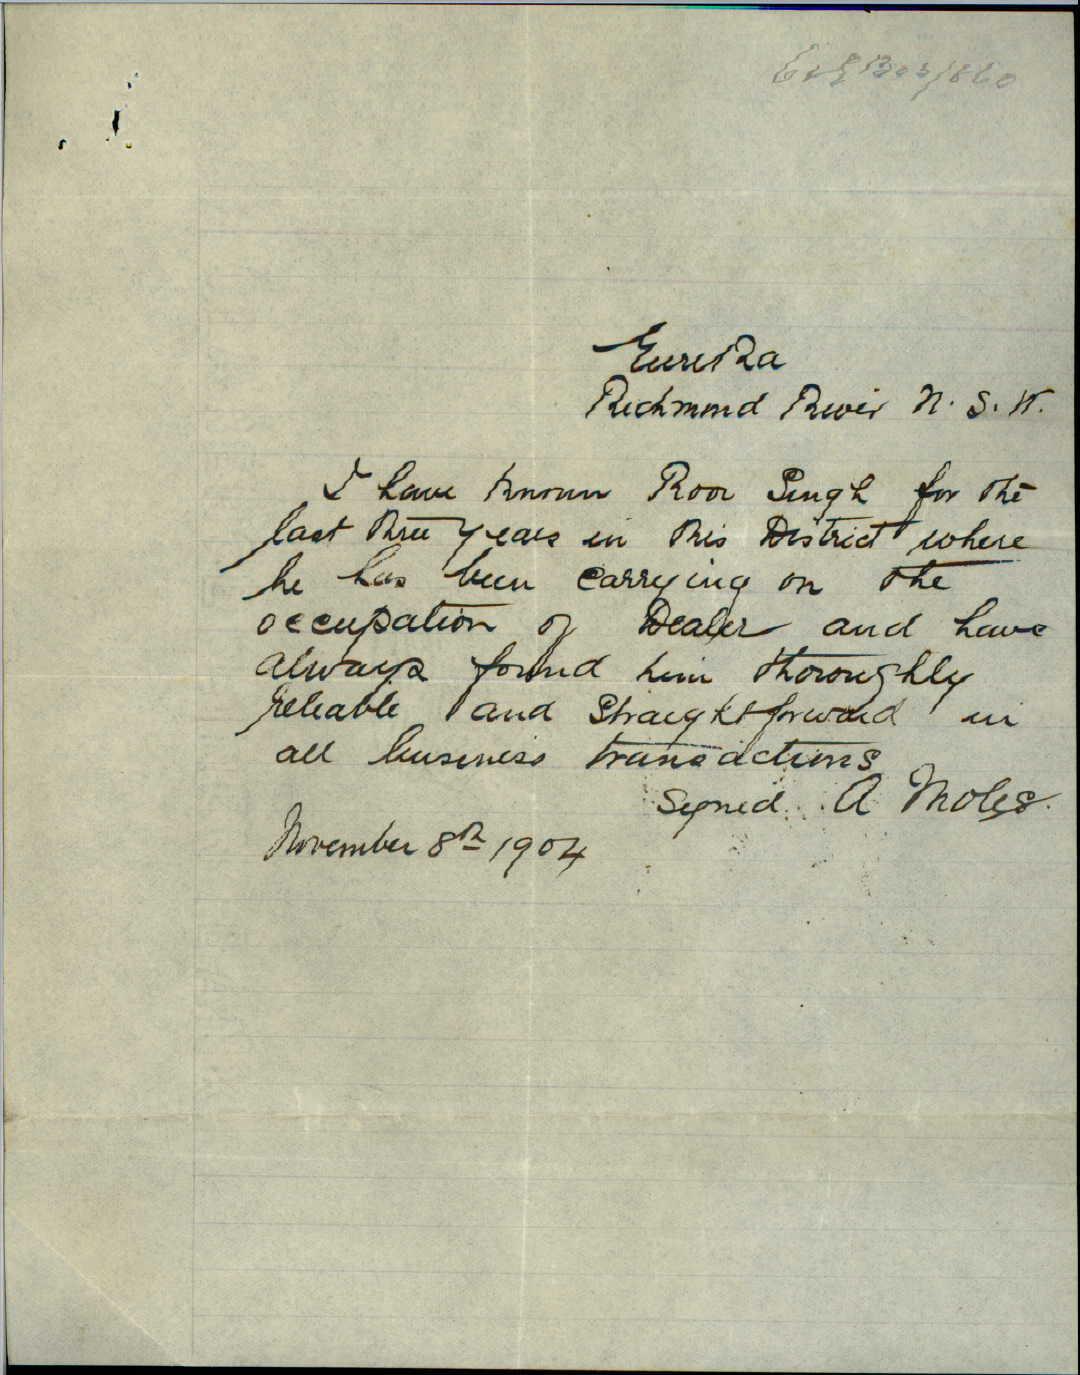 Eureka
Richmond River N. S. W.
I have known Roor Singh for the
last three years in this District where
he has been carrying on the
occupation of Dealer and have
always found him thoroughly
reliable and Straightforward in
all business transactions
Signed. A Moles.
November 8th 1904